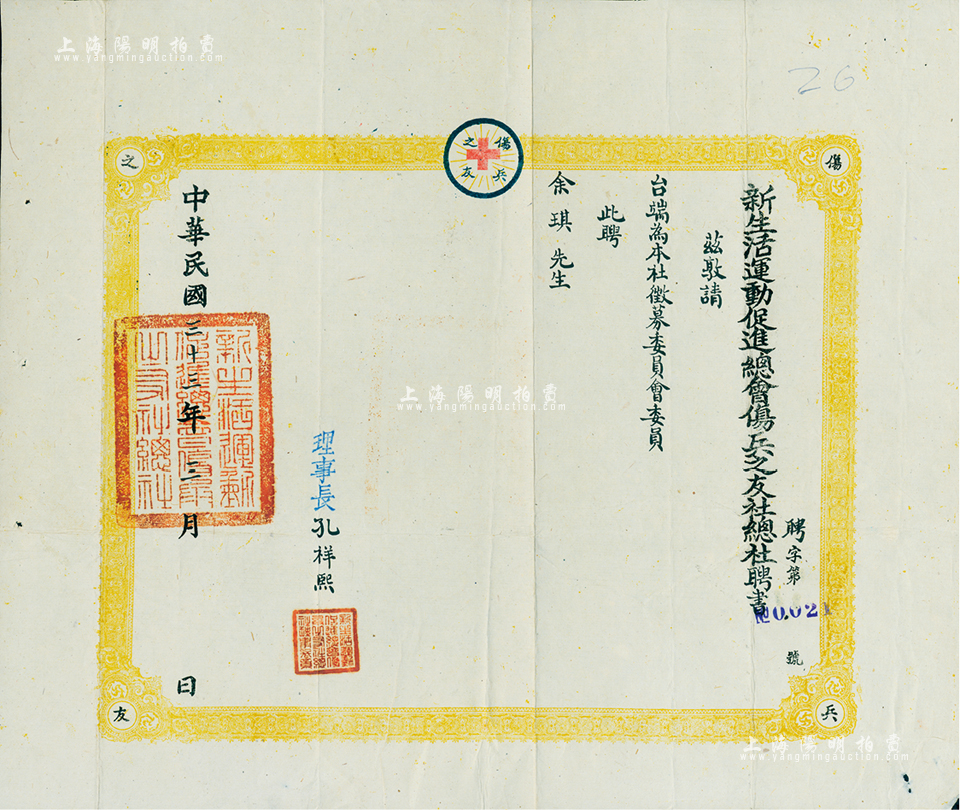 上海陽明拍賣
www.yangmingauction.com
26
傷兵之友
傷
兵
之
友
新生活運動促進總會傷兵之友社總社聘書
聘字第
0021
號
茲敦請
台端為本社徵募委員會委員
此聘
余琪先生
理事長孔祥熙
中華民國三十三年三月 日
新生活運動促進總會傷兵之友社總社
上海陽明拍賣
www.yangmingauction.com
上海陽明拍賣
www.yangmingauction.com